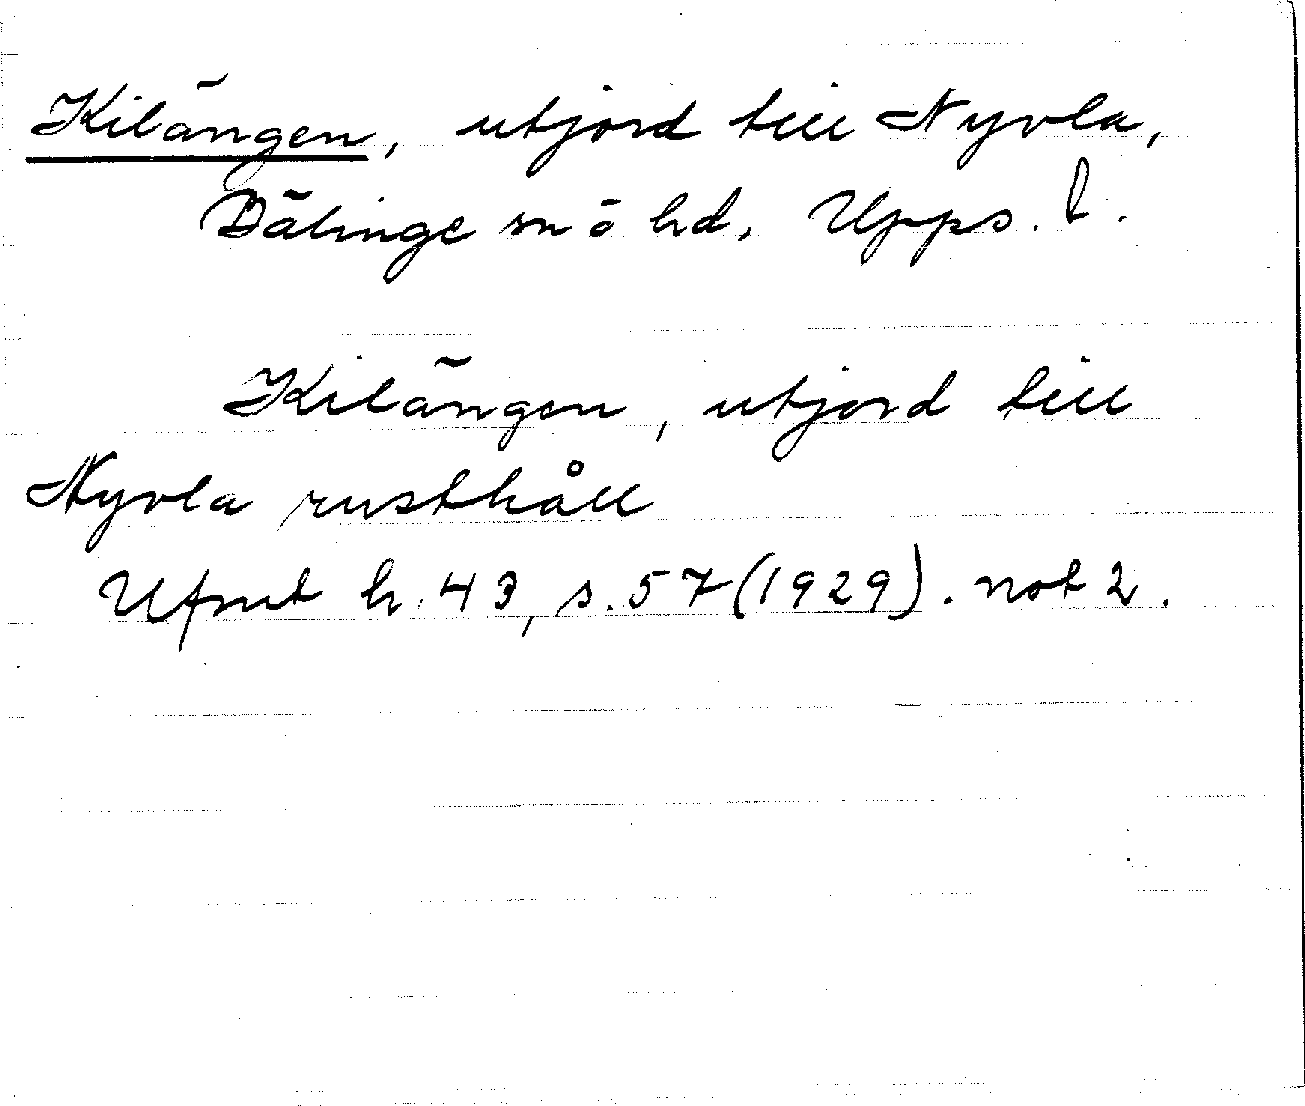 Kilängen, utjord till Nyvla,
Bälinge sn ö hd, Upps. l.
Kilängen, utjord till
Nyvla rusthåll
Ufmt h. 43, s. 57 (1929). not 2.